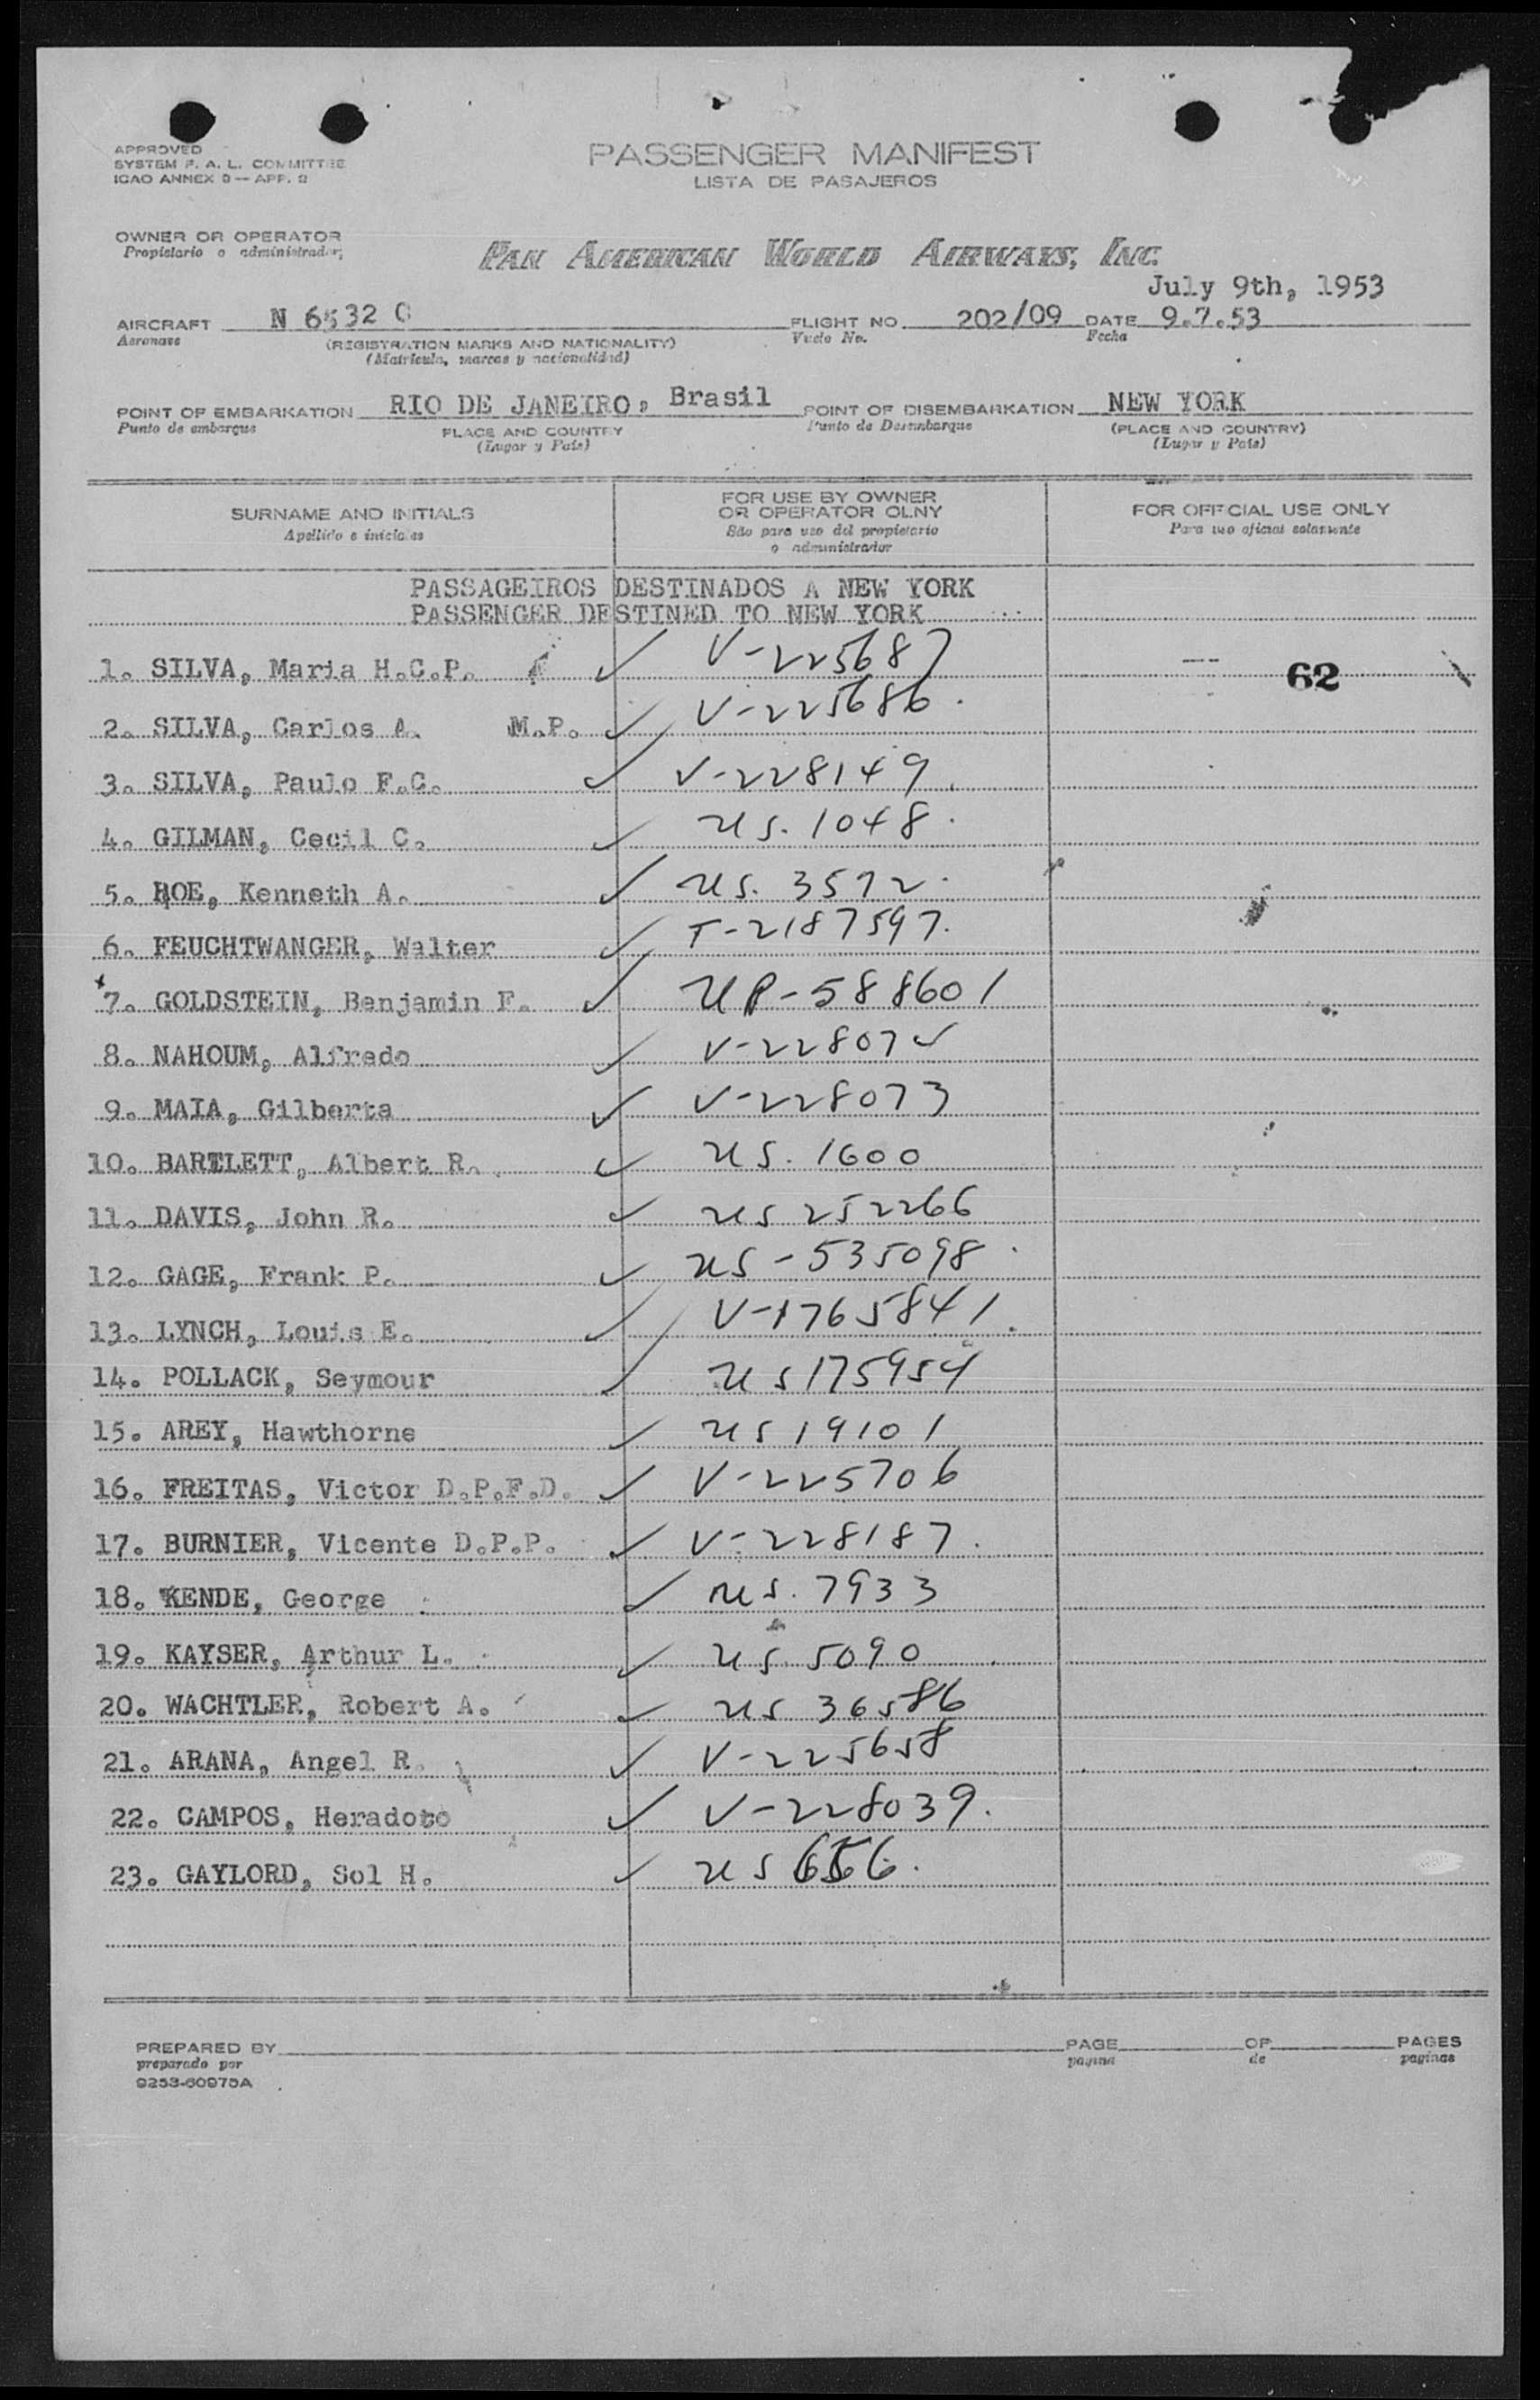 APPROVED
SYSTEM F. A. L. COMMITTEE
ICAO ANNEX 9 — APP. 2
PASSENGER MANIFEST
LISTA DE PASAJEROS
OWNER OR OPERATOR
Propietario o administrador;
PAN AMERICAN WORLD AIRWAYS, INC.
July 9th, 1953
AIRCRAFT N 6532 C FLIGHT NO. 202/09 DATE 9.7.53
Aeronave (REGISTRATION MARKS AND NATIONALITY) Vuelo No. Fecha
(Matricula, marcas y nacionalidad)
POINT OF EMBARKATION RIO DE JANEIRO, Brasil POINT OF DISEMBARKATION NEW YORK
Punto de embarque PLACE AND COUNTRY Punto de Desembarque (PLACE AND COUNTRY)
(Lugar y Pais) (Lugar y Pais)
SURNAME AND INITIALS FOR USE BY OWNER OR OPERATOR OLNY FOR OFFICIAL USE ONLY
Apellido e iniciales Sólo para uso del propietario o administrador Para uso oficial solamente
PASSAGEIROS DESTINADOS A NEW YORK
PASSENGER DESTINED TO NEW YORK
1. SILVA, Maria H.C.P. ✓ V-225687 62
2. SILVA, Carlos A. M.P. ✓ V-225686.
3. SILVA, Paulo F.C. ✓ V-228149.
4. GILMAN, Cecil C. ✓ US. 1048.
5. ROE, Kenneth A. ✓ US. 3572.
6. FEUCHTWANGER, Walter ✓ T-2187597.
7. GOLDSTEIN, Benjamin F. ✓ UP-588601
8. NAHOUM, Alfredo ✓ V-228072
9. MAIA, Gilberta ✓ V-228073
10. BARTLETT, Albert R. ✓ US. 1600
11. DAVIS, John R. ✓ US 252266
12. GAGE, Frank P. ✓ US-535098.
13. LYNCH, Louis E. ✓ V-1765841.
14. POLLACK, Seymour ✓ US 175954
15. AREY, Hawthorne ✓ US 19101
16. FREITAS, Victor D.P.F.D. ✓ V-225706
17. BURNIER, Vicente D.P.P. ✓ V-228187.
18. KENDE, George ✓ US. 7933
19. KAYSER, Arthur L. ✓ US 5090
20. WACHTLER, Robert A. ✓ US 36586
21. ARANA, Angel R. ✓ V-225658
22. CAMPOS, Heradoto ✓ V-228039.
23. GAYLORD, Sol H. ✓ US 656.
PREPARED BY PAGE OF PAGES
preparado por pagina de paginas
9253-60975A